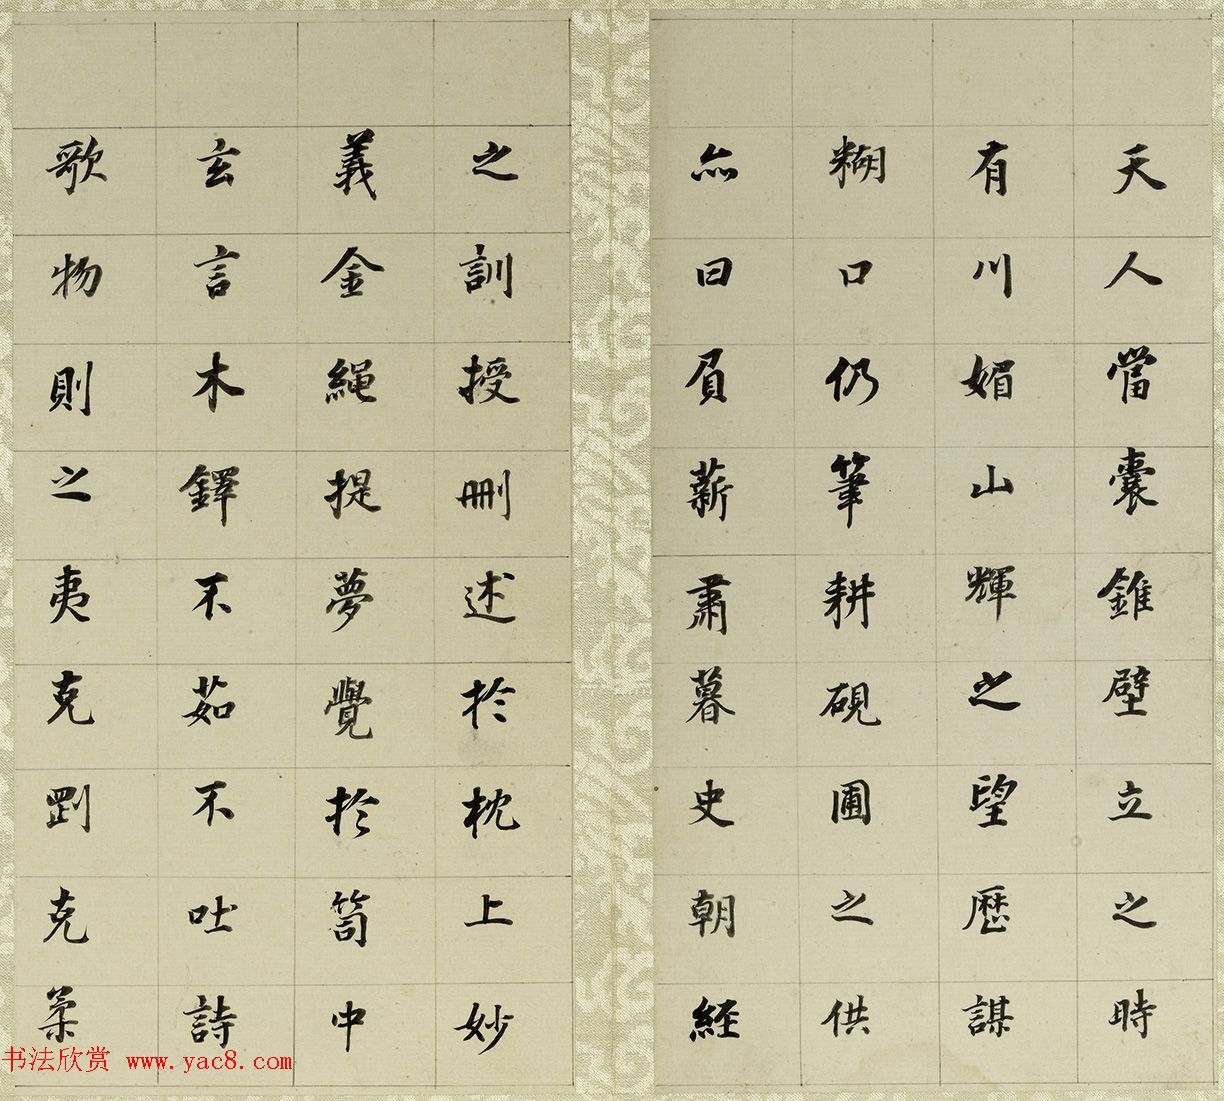 天人當囊錐壁立之時
有川媚山輝之望歷謀
糊口仍筆耕硯圃之供
亦曰夙薪肅暮史朝經
之訓授刪述於枕上妙
義金繩提夢覺於笥中
玄言木鐸不茹不吐詩
歌物則之夷克剛克柔
书法欣赏 www.yac8.com